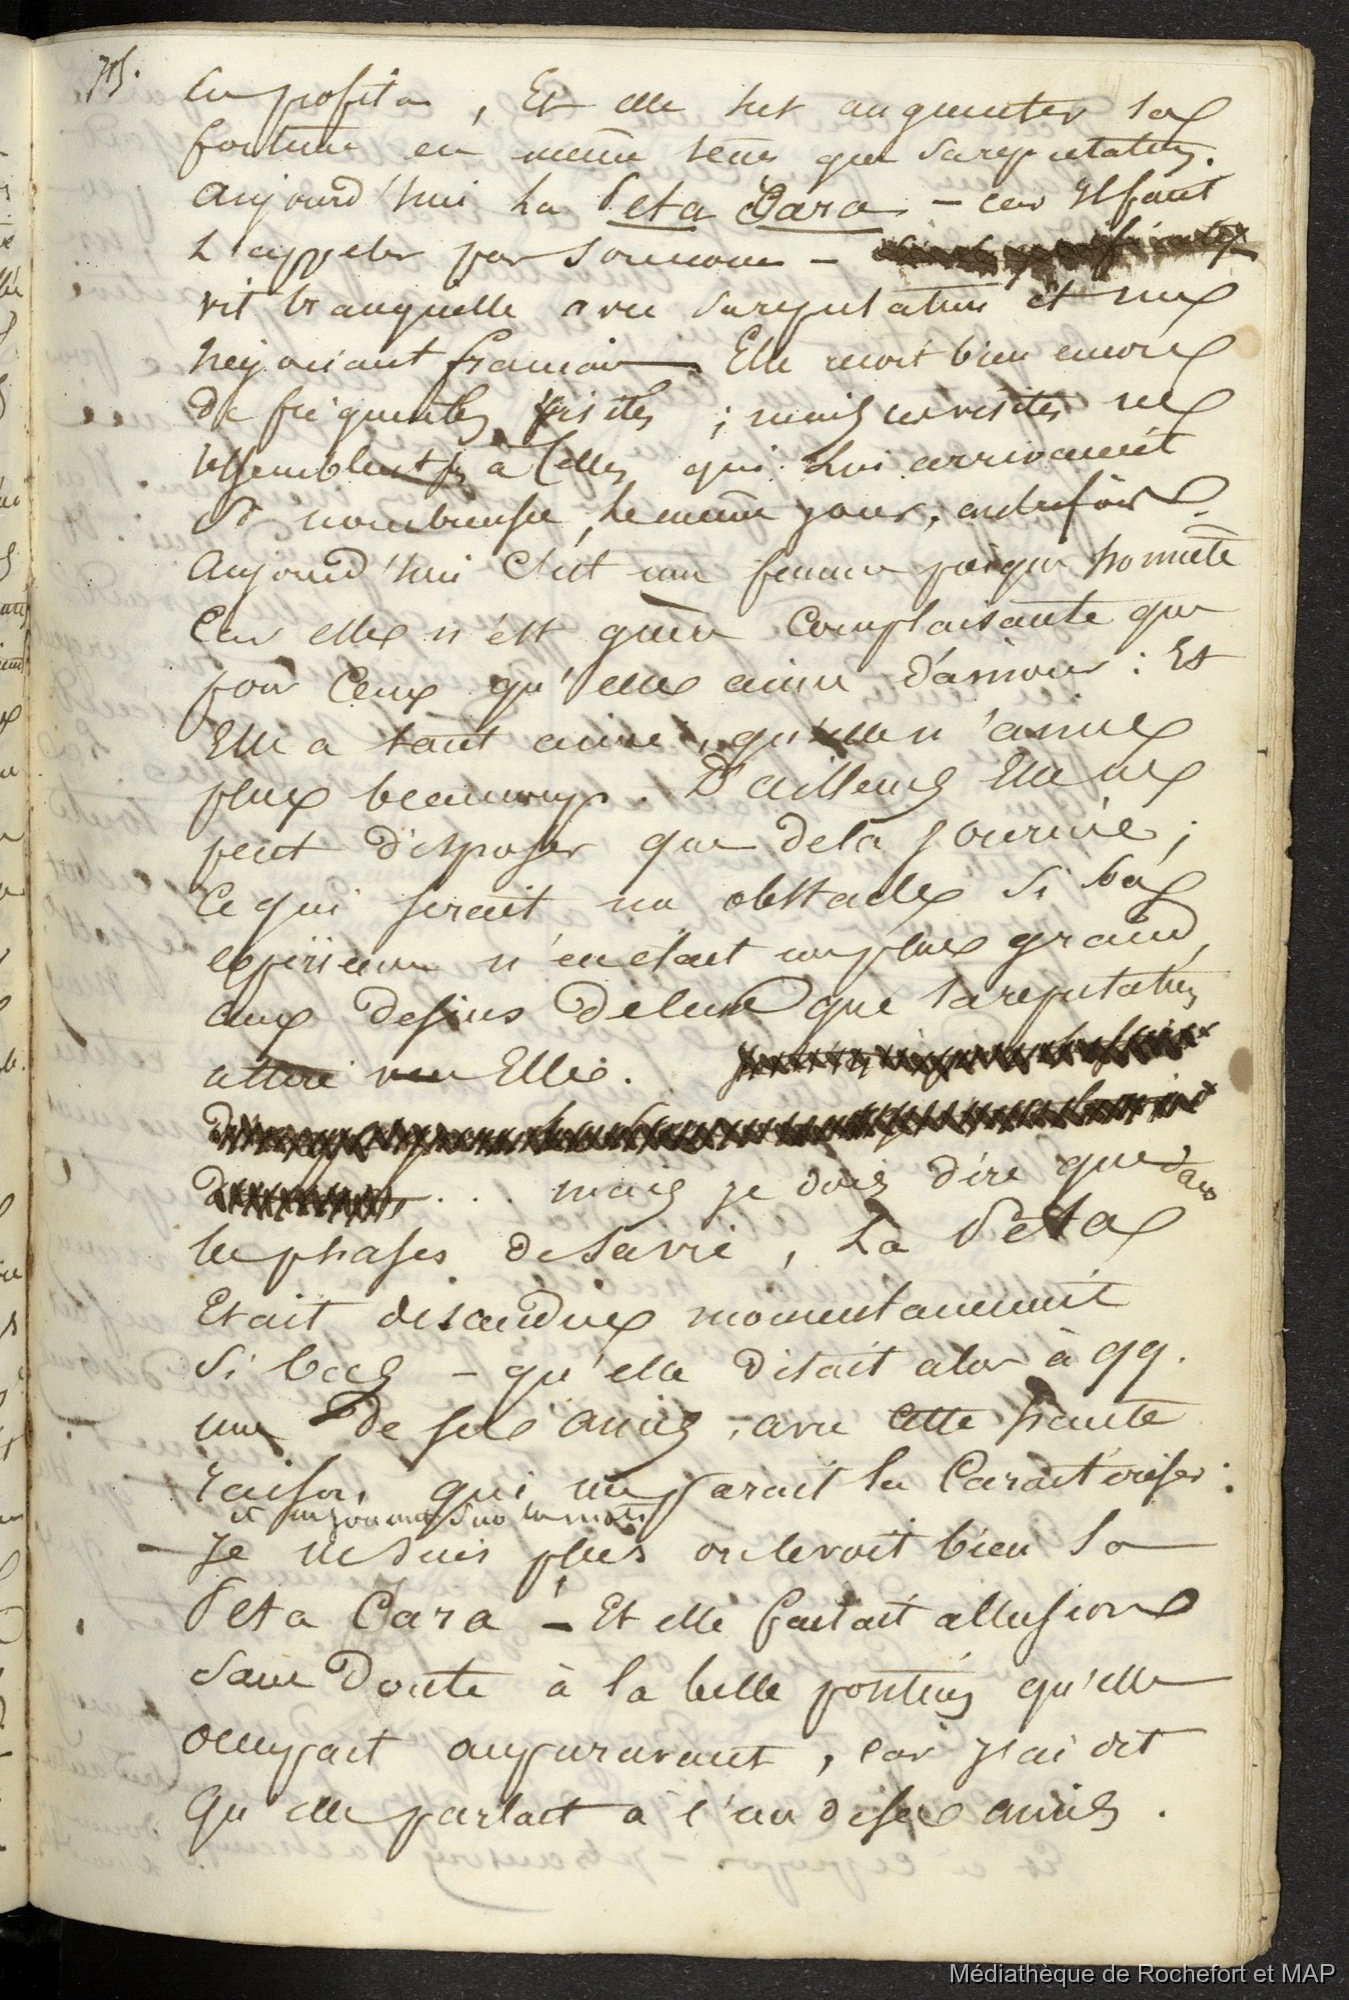 75.
en profita, Et elle sut augmenter sa
fortune en même tems que sa reputation.
aujourd'hui La Peta Cara – car Il faut
L'appeler par son nom –
vit tranquille avec sa reputation et un
négociant français. Elle recoit bien encore
de fréquentes visites ; mais ces visites ne
ressemblent pas à Celles qui Lui arrivaient
si nombreuses, le même jour, autrefois.
Aujourd'hui C'est une femme presque honnête
Car elle n'est guère Complaisante que
pour Ceux qu'elle aime d'amour : Et
Elle a tant aimé, qu'elle n'aime
plus beaucoup. D'ailleurs Elle ne
peut disposer que de la journée ;
Ce qui serait un obstacle si son
expérience n'en était un plus grand,
aux desirs de ceux que sa reputation
attire vers Elle.
... mais je dois dire que dans
les phases de sa vie, La Peta
Etait descendue momentanement
si bas – qu'elle disait alors à qq.
un de ses amis, avec cette haute
raison qui me parait la Caractériser :
– Je ne suis plus on le voit bien La
Peta Cara – Et elle faisait allusion
sans Doute à la belle position qu'elle
occupait auparavant, car j'ai dit
Qu'elle parlait à l'un de ses amis.
Médiathèque de Rochefort et MAP